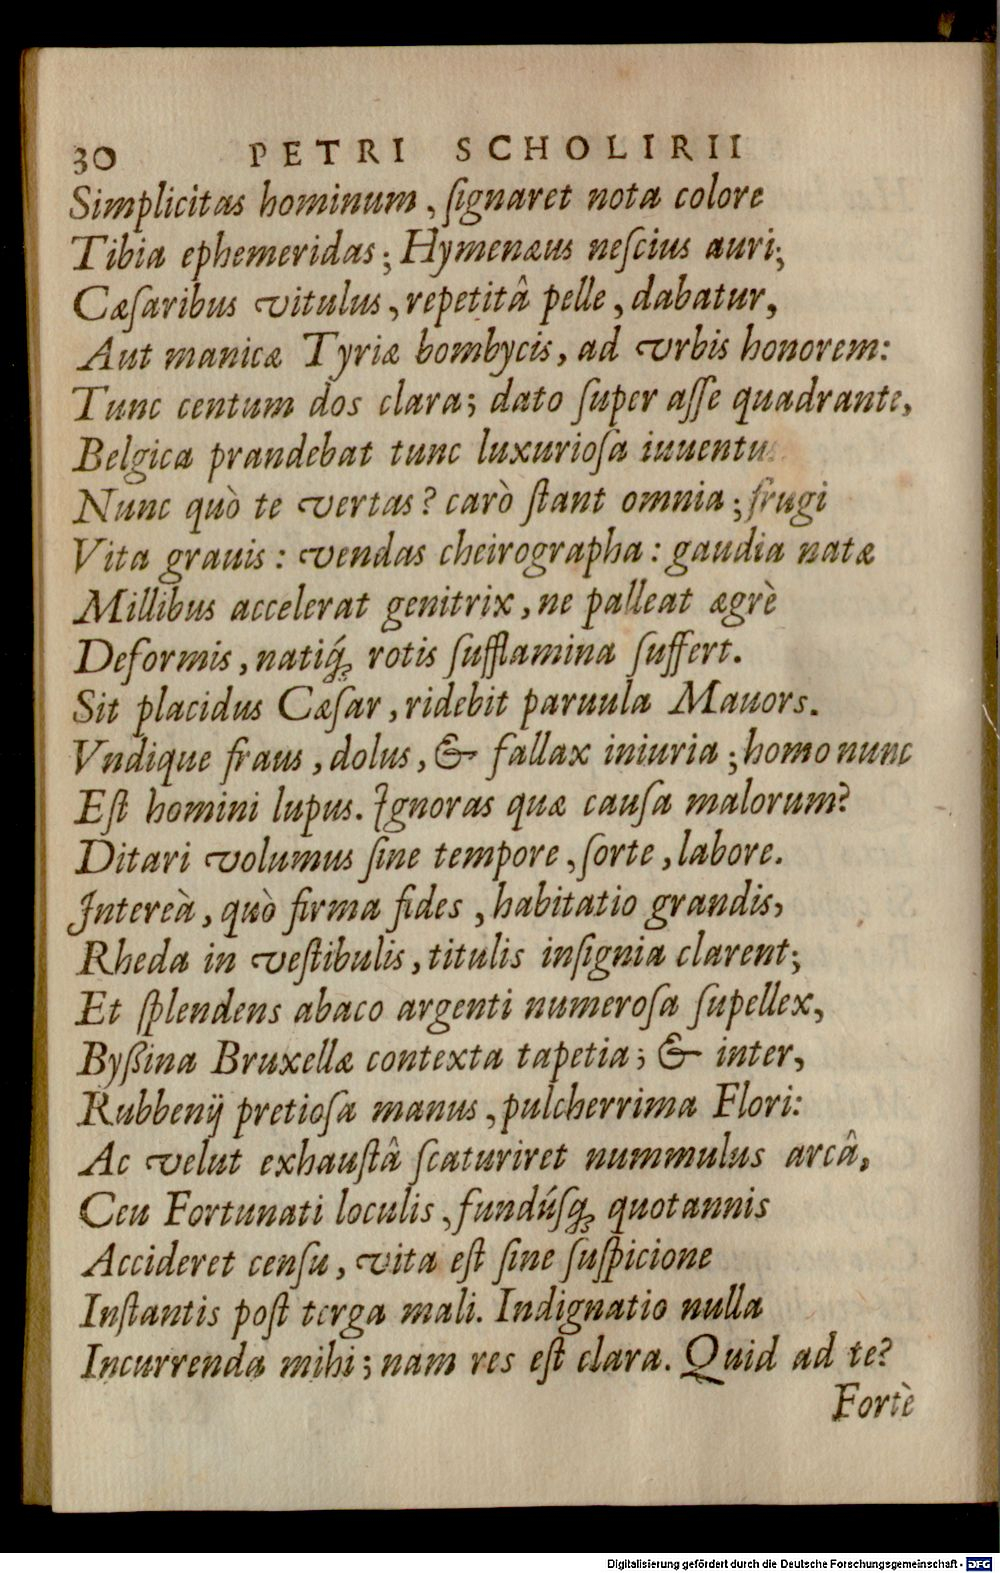 30 PETRI SCHOLIRII
Simplicitas hominum, ſignaret nota colore
Tibia ephemeridas; Hymenæus neſcius auri;
Cæſaribus vitulus, repetitâ pelle, dabatur,
Aut manicæ Tyriæ bombycis, ad vrbis honorem:
Tunc centum dos clara; dato ſuper aſſe quadrante,
Belgica prandebat tunc luxurioſa iuuentus
Nunc quò te vertas? carò ſtant omnia; frugi
Vita grauis: vendas cheirographa: gaudia natæ
Millibus accelerat genitrix, ne palleat ægrè
Deformis, natiq́; rotis ſufflamina ſuffert.
Sit placidus Cæſar, ridebit paruula Mauors.
Vndique fraus, dolus, & fallax iniuria; homo nunc
Eſt homini lupus. Ignoras quæ cauſa malorum?
Ditari volumus ſine tempore, ſorte, labore.
Intereà, quò firma fides, habitatio grandis,
Rheda in veſtibulis, titulis inſignia clarent;
Et ſplendens abaco argenti numeroſa ſupellex,
Byßina Bruxellæ contexta tapetia; & inter,
Rubbenij pretioſa manus, pulcherrima Flori:
Ac velut exhauſtâ ſcaturiret nummulus arcâ,
Ceu Fortunati loculis, fundúſq; quotannis
Accideret cenſu, vita eſt ſine ſuſpicione
Inſtantis poſt terga mali. Indignatio nulla
Incurrenda mihi; nam res eſt clara. Quid ad te?
Fortè
Digitalisierung gefördert durch die Deutsche Forschungsgemeinschaft - DFG